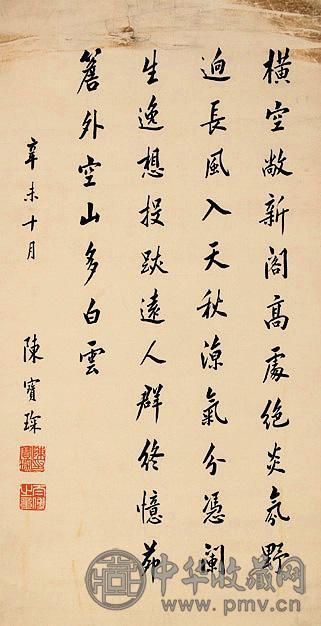 橫空敞新閣高處絕炎氛野
迥長風入天秋涼氣分憑闌
生逸想投跡遠人群終憶茆
簷外空山多白雲
辛未十月
陳寶琛
中华收藏网
www.pmv.cn